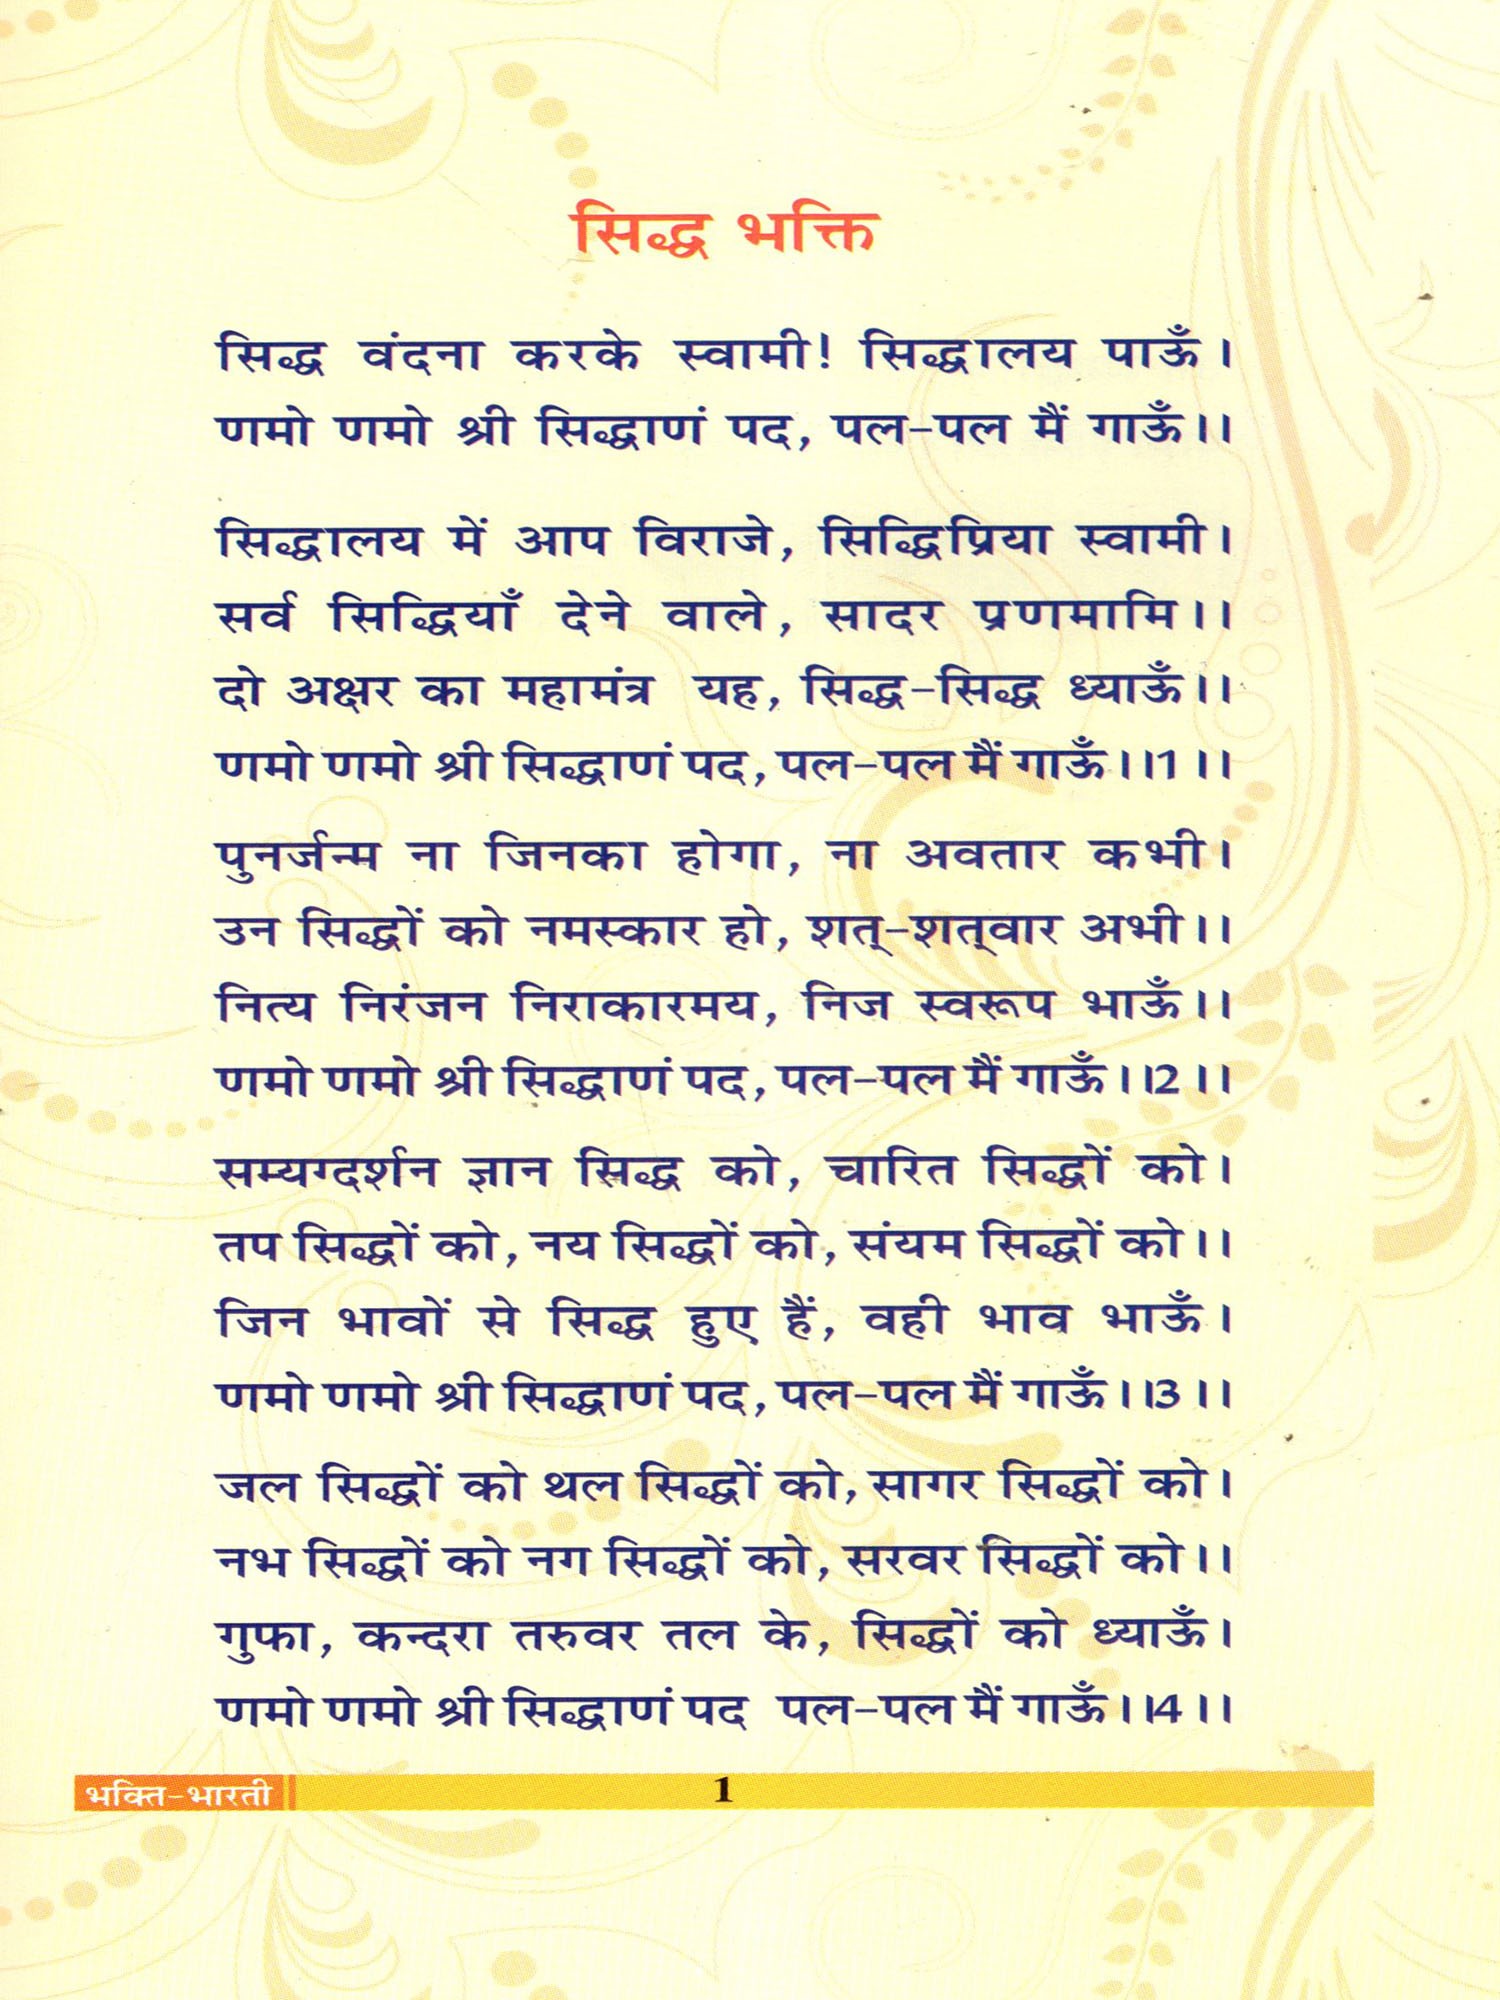 सिद्ध भक्ति
सिद्ध वंदना करके स्वामी! सिद्धालय पाऊँ।
णमो णमो श्री सिद्धाणं पद, पल-पल मैं गाऊँ।।
सिद्धालय में आप विराजे, सिद्धिप्रिया स्वामी।
सर्व सिद्धियाँ देने वाले, सादर प्रणमामि।।
दो अक्षर का महामंत्र यह, सिद्ध-सिद्ध ध्याऊँ।।
णमो णमो श्री सिद्धाणं पद, पल-पल मैं गाऊँ।।1।।
पुनर्जन्म ना जिनका होगा, ना अवतार कभी।
उन सिद्धों को नमस्कार हो, शत्-शत्वार अभी।।
नित्य निरंजन निराकारमय, निज स्वरूप भाऊँ।।
णमो णमो श्री सिद्धाणं पद, पल-पल मैं गाऊँ।।2।।
सम्यग्दर्शन ज्ञान सिद्ध को, चारित सिद्धों को।
तप सिद्धों को, नय सिद्धों को, संयम सिद्धों को।।
जिन भावों से सिद्ध हुए हैं, वही भाव भाऊँ।
णमो णमो श्री सिद्धाणं पद, पल-पल मैं गाऊँ।।3।।
जल सिद्धों को थल सिद्धों को, सागर सिद्धों को।
नभ सिद्धों को नग सिद्धों को, सरवर सिद्धों को।।
गुफा, कन्दरा तरुवर तल के, सिद्धों को ध्याऊँ।
णमो णमो श्री सिद्धाणं पद पल-पल मैं गाऊँ।।4।।
भक्ति-भारती
1